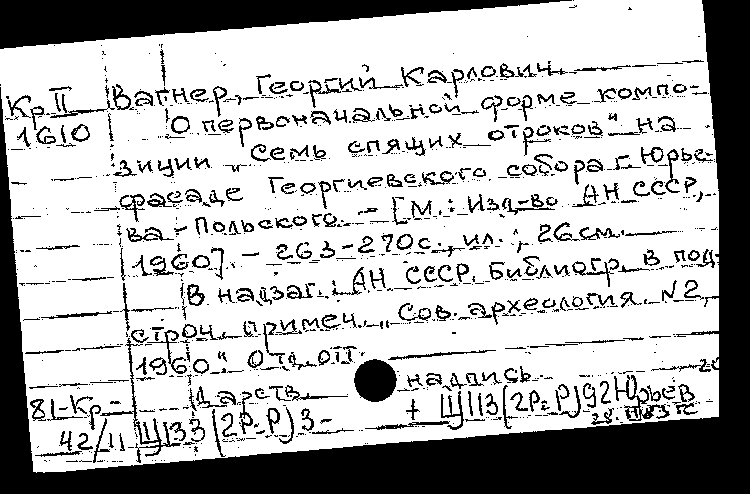 Кр II Вагнер, Георгий Карлович.
1610 О первоначальной форме компо-
зиции „Семь спящих отроков" на
фасаде Георгиевского собора г. Юрье-
ва-Польского. – [М.: Изд-во АН СССР,
1960]. – 263-270с., ил.; 26см.
В надзаг.: АН СССР. Библиогр. в под-
строч. примеч. „Сов. археология. N2,
1960." Отд. отт.
Дарств. надпись.
81-Кр- Щ133(2Р-Р)3- + Щ113(2Р-Р)92Юрьев
42/11